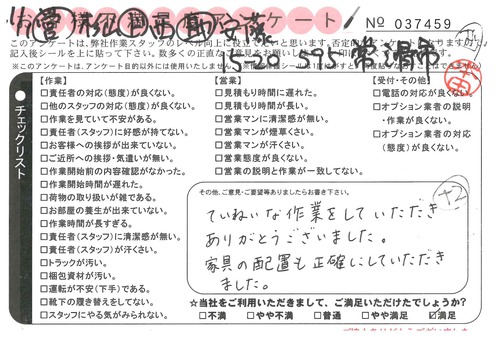 お客様アンケート
No 037459
このアンケートは、弊社作業スタッフのレベル向上に役立てたいと思います。否定的
記入後シールを上に貼って下さい。数多くの正直なご意見をお願いし
※このアンケートは、アンケート目的以外には使用いたしません。
5-20 595
チェックリスト
【作業】
□責任者の対応(態度)が良くない。
□他のスタッフの対応(態度)が良くない。
□作業を見ていて不安がある。
□責任者(スタッフ)に好感が持てない。
□お客様への挨拶が出来ていない。
□ご近所への挨拶・気遣いが無い。
□作業開始前の内容確認がなかった。
□作業開始時間が遅れた。
□荷物の取り扱いが雑である。
□お部屋の養生が出来ていない。
□作業時間が長すぎる。
□責任者(スタッフ)に清潔感が無い。
□責任者(スタッフ)が汗くさい。
□トラックが汚い。
□梱包資材が汚い。
□運転が不安(下手)である。
□靴下の履き替えをしてない。
□スタッフにやる気がみられない。
【営業】
□見積もり時間に遅れた。
□見積もり時間が長い。
□営業マンに清潔感が無い。
□営業マンが煙草くさい。
□営業マンが汗くさい。
□営業態度が良くない。
□営業の説明と作業が一致してない。
【受付・その他】
□電話の対応が良くない。
□オプション業者の説明
・作業が良くない。
□オプション業者の対応
(態度)が良くない。
その他、ご意見・ご要望等ありましたらお書き下さい。
+2
ていねいな作業をしていただき
ありがとうございました。
家具の配置も正確にしていただき
ました。
☆当社をご利用いただきまして、ご満足いただけたでしょうか?
□不満 □やや不満 □普通 □やや満足 ☑満足